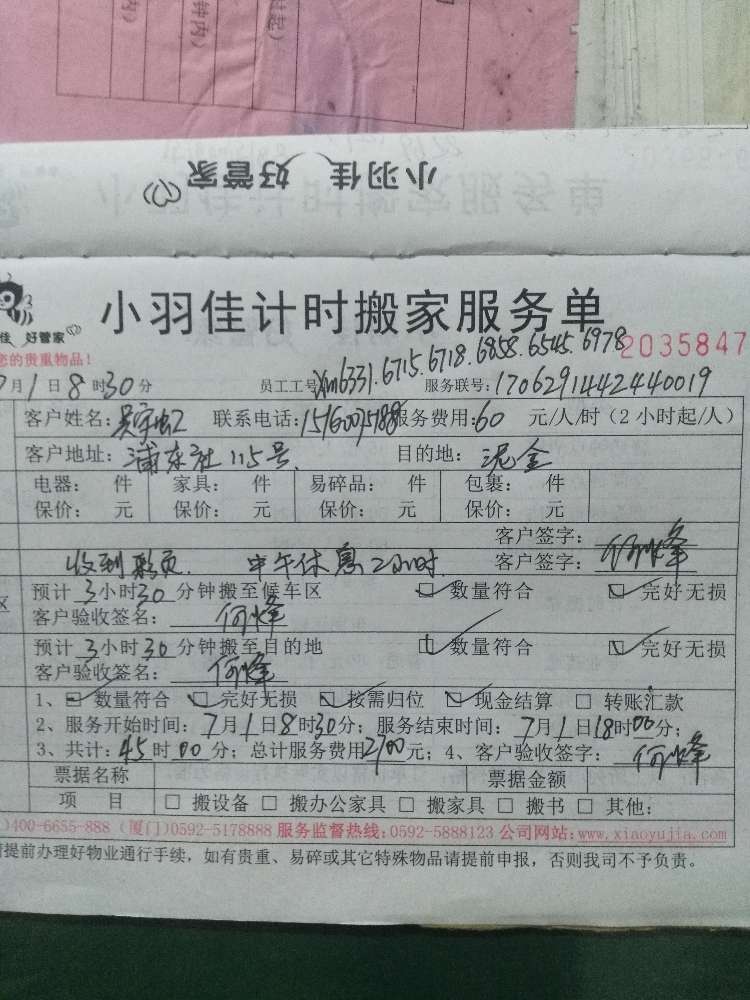 钟内)
小羽佳 好管家
小羽佳计时搬家服务单
佳 好管家
您的贵重物品!
2035847
7月1日8时30分 员工工号:xm6331.6715.6718.6858.6545.6978 服务联号:1706291442440019
客户姓名: 联系电话: 服务费用:60 元/人/时(2小时起/人)
客户地址:浦东社115号 目的地:泥金
电器: 件 家具: 件 易碎品: 件 包裹: 件
保价: 元 保价: 元 保价: 元 保价: 元
客户签字:何烽
收到彩页. 中午休息2小时. 客户签字:
区 预计3小时30分钟搬至候车区 数量符合 完好无损
客户验收签名:何烽
预计3小时30分钟搬至目的地 数量符合 完好无损
客户验收签名:何烽
1、数量符合 完好无损 按需归位 现金结算 转账汇款
2、服务开始时间:7月1日8时30分;服务结束时间:7月1日18时00分;
3、共计:45时00分;总计服务费用2700元;4、客户验收签字:何烽
票据名称 票据金额
项 目 搬设备 搬办公家具 搬家具 搬书 其他:
)400-6655-888 (厦门)0592-5178888 服务监督热线:0592-5888123 公司网站:www.xiaoyujia.com
请提前办理好物业通行手续,如有贵重、易碎或其它特殊物品请提前申报,否则我司不予负责。